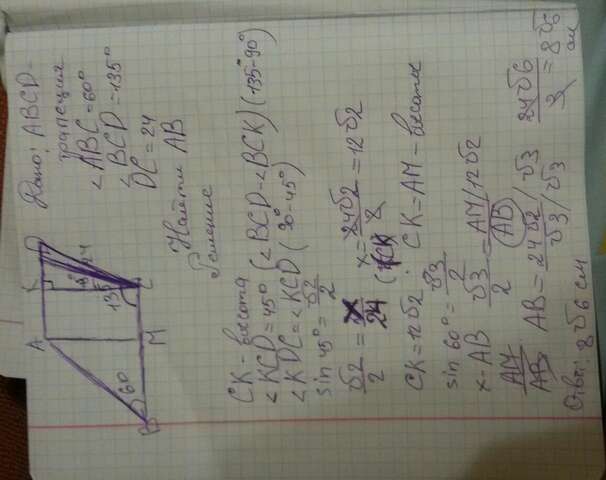 Дано: ABCD -
трапеция
<ABC=60°
<BCD=135°
DC=24
Найти AB
Решение
A
K
D
24
45
135
C
60
B
M
CK - высота
<KCD=45° (<BCD-<BCK) (135°-90°)
<KDC=<KCD (90°-45°)
sin 45° = √2/2
√2/2 = x/24 x = 24√2/2 = 12√2
(CK)
CK=12√2. CK=AM - высоты
sin 60° = √3/2
x - AB √3/2 = AM/AB 12√2
AM/AB AB = 24√2/√3 /√3/√3 24√6/3 = 8√6 см
Ответ: 8√6 см